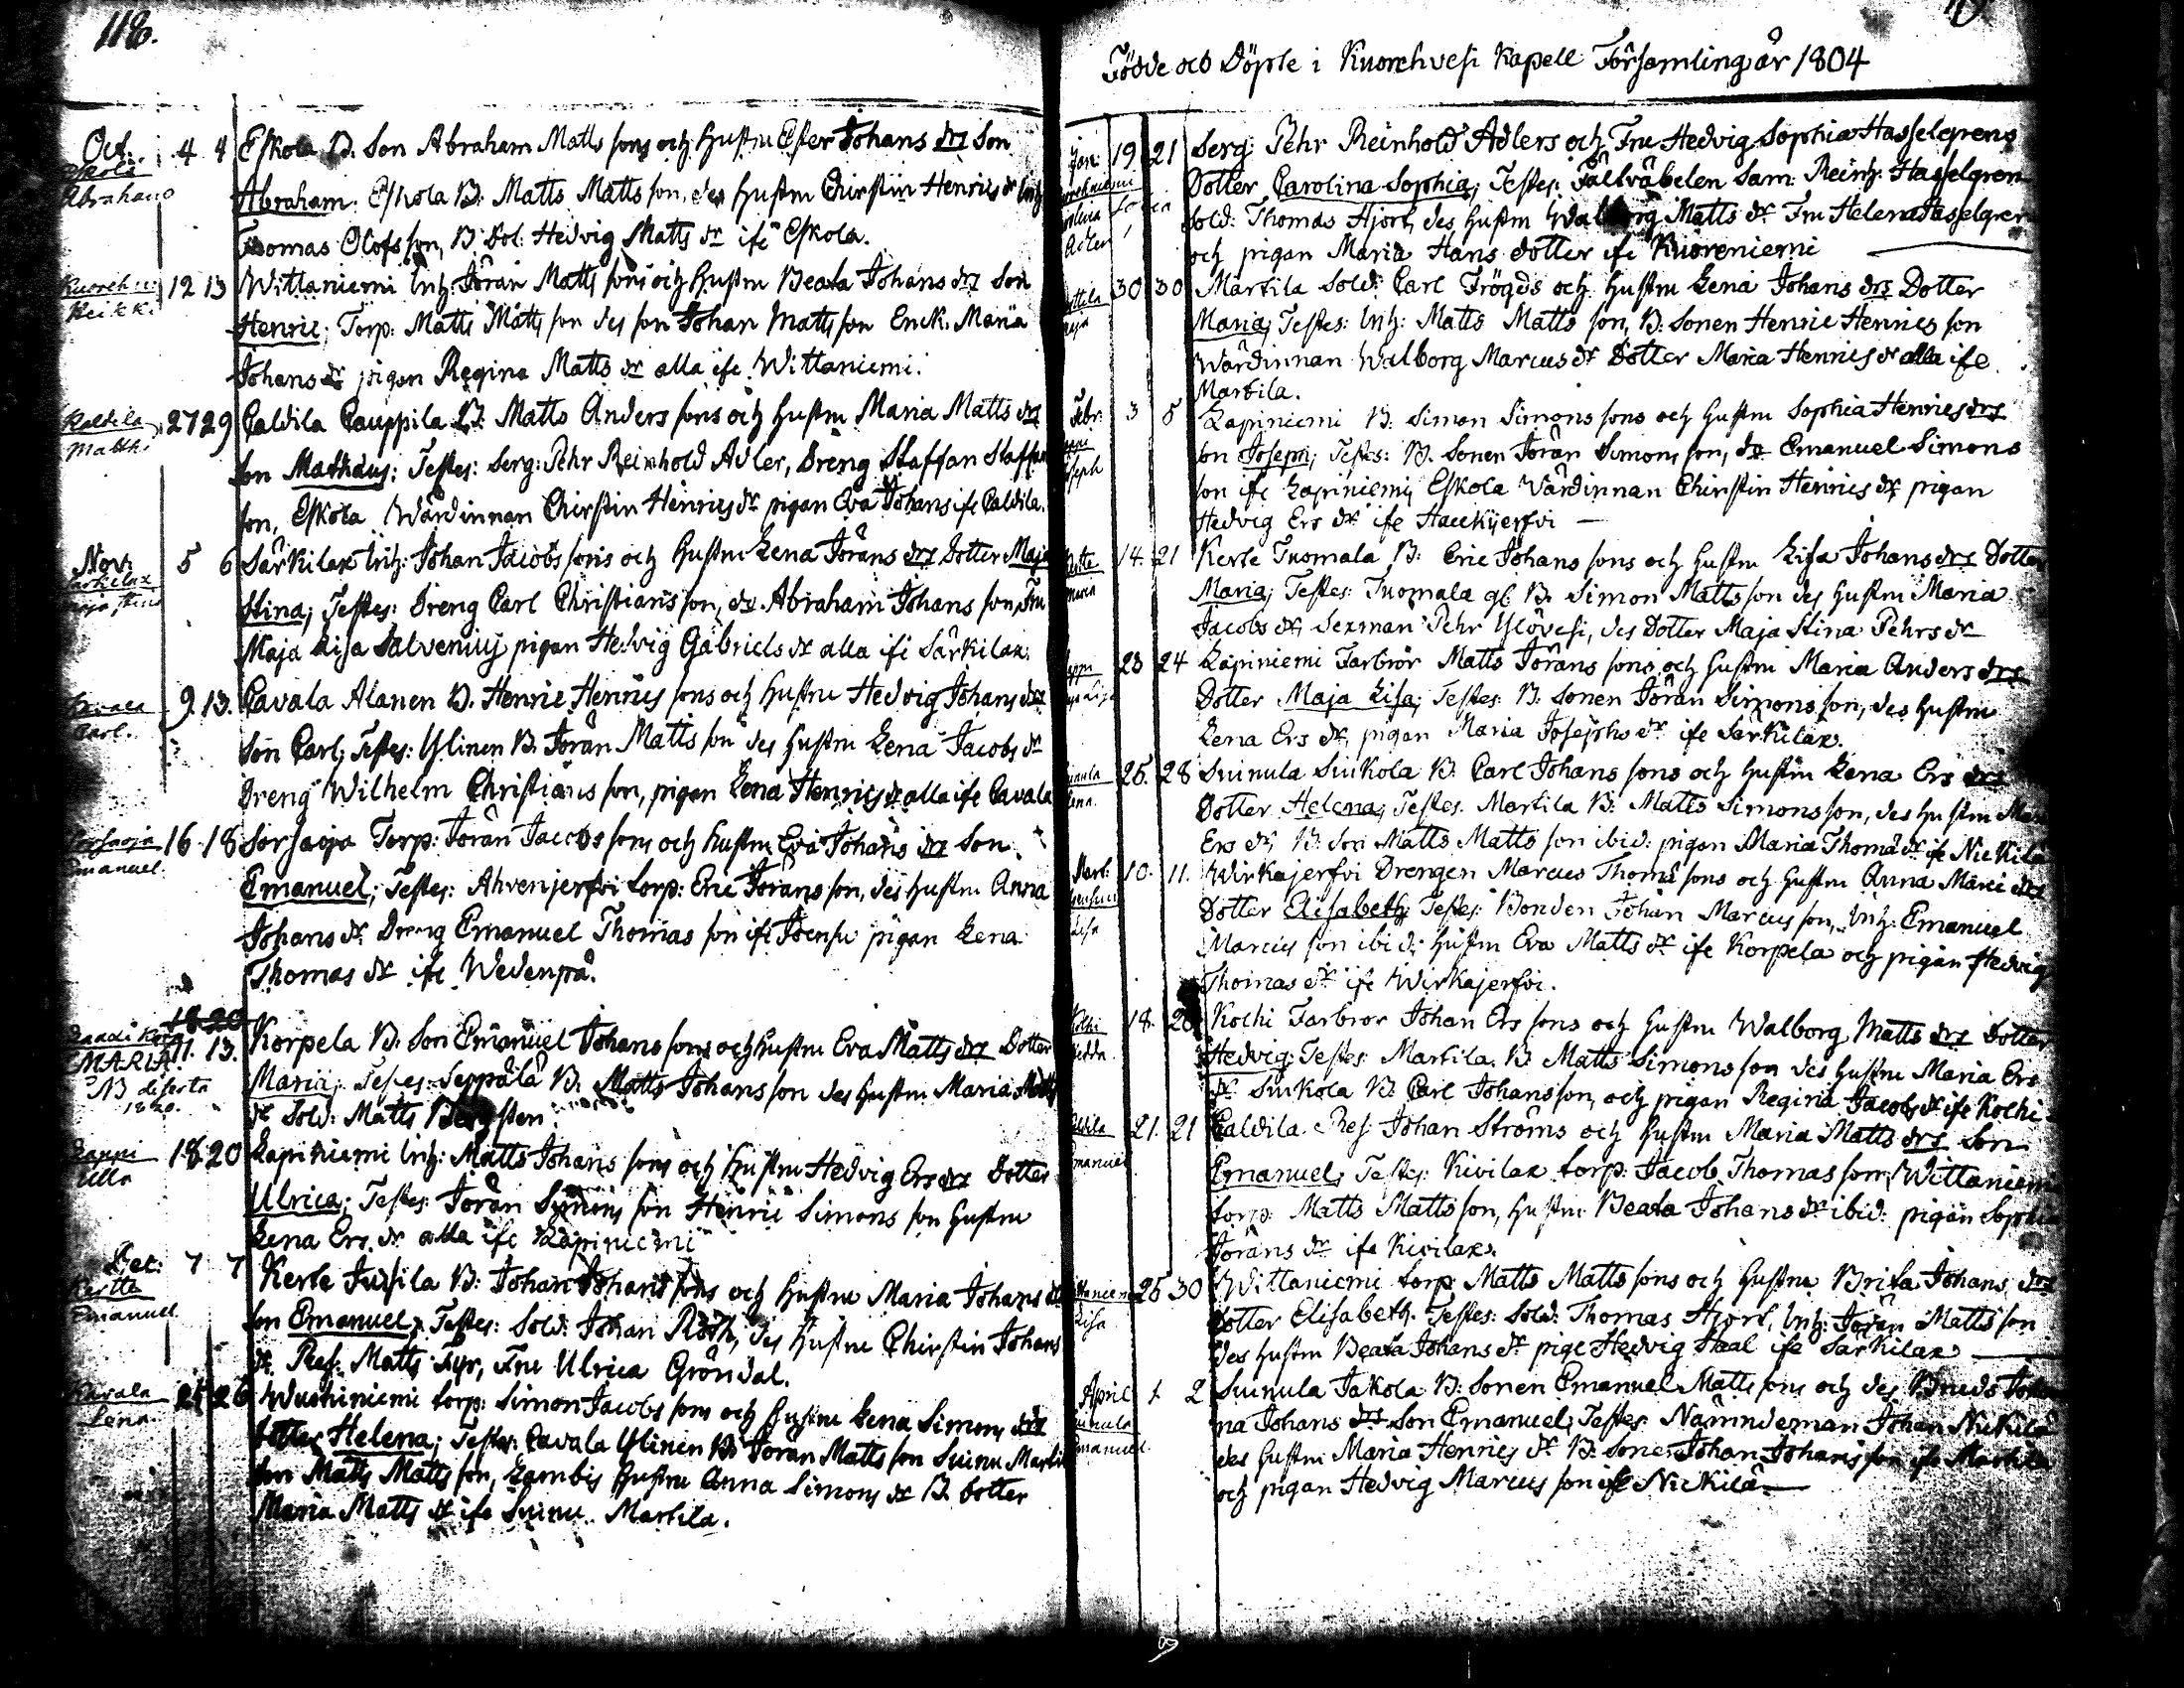 118.
Oct. 4 4 Eskola B. Son Abraham Matts sons och hustru Ester Johans drs Son
Eskola
Abraham
Abraham. Eskola B: Matts Matts son, des hustru Chirstin Henrics dr Inh:
Thomas Olofs son, B: dot: Hedvig Matts dr ifr Eskola.
12 13 Wittaniemi Inh: Jöran Matts sons och hustru Beata Johans drs Son
Keikki
Henric; Torp: Matts Matts son des son Johan Matts son Enck. Maria
Johans dr pigan Regina Matts dr alla ifr Wittaniemi.
Kaldila 27 29 Caldila Cauppila B: Matts Anders sons och hustru Maria Matts drs
Matth:
son Mathäus; Testes: Serg: Pehr Reinhold Adler, Dreng Staffan Staffans
son, Eskola Wärdinnan Chirstin Henrics dr pigan Eva Johans ifr Caldila.
Nov. 5 6 Särkilax Inh: Johan Jacobs sons och hustru Lena Jörans drs Dotter Maja
Särkilax
Maja Stina
Stina; Testes: Dreng Carl Christians son, dr. Abraham Johans son, Fru
Maja Lisa Salvenius pigan Hedvig Gabriels dr alla ifr Särkilax.
Kavala 9. 13. Cavala Alanen B. Henric Henrics sons och hustru Hedvig Johans drs
Carl.
Son Carl; Testes: Ylinen B. Jöran Matts son des hustru Lena Jacobs dr
Dreng Wilhelm Christians son, pigan Lena Henrics dr alla ifr Cavala
16. 18 Sorsaoja Torp: Jöran Jacobs sons och hustru Eva Johans drs Son
Emanuel.
Emanuel; Testes: Ahvenjerfvi torp: Eric Jörans son, des hustru Anna
Johans dr Dreng Emanuel Thomas son ifr Joensu pigan Lena
Thomas dr ifr Wedenpä.
18. 20
11. 13. Korpela B. Son Emanuel Johans sons och hustru Eva Matts drs Dotter
MARIA.
NB
Maria; Testes: Seppälä B. Matts Johans son des hustru Maria Matts
dr Sold: Matts Bergsten.
Lappi 18 20 Lapiniemi Inh: Matts Johans sons och hustru Hedvig Ers drs Dotter
Ulla
Ulrica; Testes: Jöran Simons son Henric Simons son hustru
Lena Ers dr alla ifr Lapiniemi
Dec: 7 7 Kerte Jussila B: Johan Johans sons och hustru Maria Johans drs
Kertte
Emanuel
son Emanuel; Testes: Sold: Johan Röth, des hustru Chirstin Johans
dr Res: Matts Fyr, Fru Ulrica Gröndal.
Kavala 25 26 Wuohiniemi torp: Simon Jacobs sons och hustru Lena Simons drs
Lena
dotter Helena; Testes: Cavala Ylinen B: Jöran Matts son Suinu Martila
son Matts Matts son, Lambis hustru Anna Simons dr B. dotter
Maria Matts dr ifr Suinu Martila.
Födde och Döpte i Kuorehvesi Kapell Församling år 1804
Jan: 19. 21 Serg: Pehr Reinhold Adlers och Fru Hedvig Sophia Hasselgrens
Dotter Carolina Sophia; Testes: Fältväbelen Sam: Reinh: Hasselgren
Adler
Sold: Thomas Hjort, des hustru Walborg Matts dr Fru Helena Hasselgren
och pigan Maria Hans dotter ifr Kuoreniemi
30 30 Martila Sold: Carl Frögds och hustru Lena Johans drs Dotter
Maria; Testes: Inh: Matts Matts son, B: Sonen Henric Henrics son
Wärdinnan Walborg Marcus dr Dotter Maria Henrics dr alla ifr
Martila.
Febr: 3 5 Lapiniemi B: Simon Simons sons och hustru Sophia Henrics drs
Joseph
son Joseph; Testes: B. Sonen Jöran Simons son, dr Emanuel Simons
son ifr Lapiniemi, Eskola Värdinnan Chirstin Henrics dr pigan
Hedvig Ers dr ifr Hauckijerfvi
14. 21 Kerte Tuomala B: Eric Johans sons och hustru Lisa Johans drs Dotter
Maria
Maria; Testes: Tuomala gl. B. Simon Matts son des hustru Maria
Jacobs dr, Sexman Pehr Ylövesi, des Dotter Maja Stina Pehrs dr
23 24 Lapiniemi Farbrör Matts Jörans sons och hustru Maria Anders drs
Dotter Maja Lisa; Testes: B. Sonen Jöran Simons son, des hustru
Lena Ers dr, pigan Maria Josephs dr ifr Särkilax.
25. 28 Suinula Siukola B. Carl Johans sons och hustru Lena Ers drs
Dotter Helena; Testes. Martila B: Matts Simons son, des hustru
Ers dr, B: Son Matts Matts son ibid: pigan Maria Thoma dr ifr Nickilä
Mart: 10. 11. Wirkajerfvi Drengen Marcus Thoma sons och hustru Anna Marci drs
Lisa
Dotter Elisabeth; Testes: Bonden Johan Marcus son, Inh: Emanuel
Marcus son ibid: hustru Eva Matts dr ifr Korpela och pigan Hedvig
Thomas dr ifr Wirkajerfvi.
Kolhi 18. Kolhi Farbror Johan Ers sons och hustru Walborg Matts drs Dotter
Hedda
Hedvig; Testes: Martila B Matts Simons son des hustru Maria Ers
dr Siukola B. Carl Johans son, och pigan Regina Jacobs dr ifr Kolhi
21. 21 Caldila Res: Johan Ströms och hustru Maria Matts drs Son
Emanuel
Emanuel; Testes: Kivilax torp: Jacob Thomas son, Wittaniemi
torp: Matts Matts son, hustru Beata Johans dr ibid: pigan
Jörans dr ifr Kivilax.
25 30 Wittaniemi torp: Matts Matts sons och hustru Brita Johans drs
Lisa
Dotter Elisabeth. Testes: Sold: Thomas Hjort, Inh: Jöran Matts son
des hustru Beata Johans dr pige Hedvig Staal ifr Särkilax
April 1 2 Suinula Jakola B: Sonen Emanuel Matts sons och des
Suinula
Emanuel.
na Johans drs Son Emanuel; Testes: Nämndeman Johan Nickilä
des hustru Maria Henrics dr B: Sonen Johan Johans son ifr Martila
och pigan Hedvig Marcus son ifr Nickilä